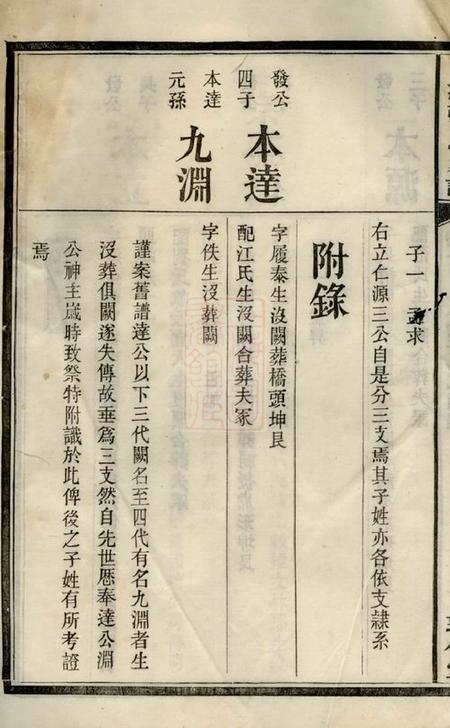 子一 孟求
右立仁源三公自是分三支焉其子姓亦各依支隷系
附錄
發公
四子
本達
字履泰生沒闕葬橋頭坤艮
配江氏生沒闕合葬夫冢
本達
元孫
九淵
字佚生沒葬闕
謹案舊譜達公以下三代闕名至四代有名九淵者生
沒葬俱闕遂失傳故垂爲三支然自先世歷奉達公淵
公神主嵗時致祭特附識於此俾後之子姓有所考證
焉